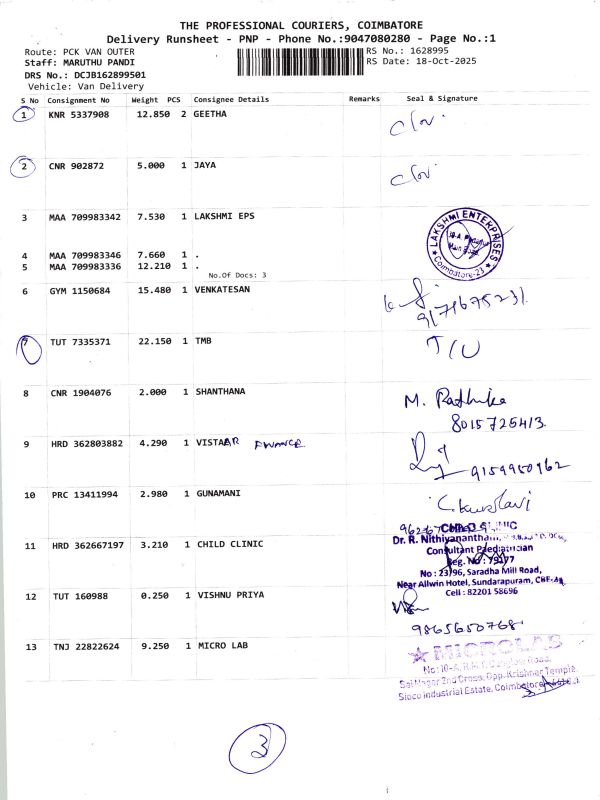 THE PROFESSIONAL COURIERS, COIMBATORE
Delivery Runsheet - PNP - Phone No.:9047080280 - Page No.:1
Route: PCK VAN OUTER RS No.: 1628995
Staff: MARUTHU PANDI RS Date: 18-Oct-2025
DRS No.: DCJB162899501
Vehicle: Van Delivery
S No Consignment No Weight PCS Consignee Details Remarks Seal & Signature
1 KNR 5337908 12.850 2 GEETHA
2 CNR 902872 5.000 1 JAYA
3 MAA 709983342 7.530 1 LAKSHMI EPS
LAKSHMI ENTERPRISES
Main Road
Coimbatore-23
4 MAA 709983346 7.660 1 .
5 MAA 709983336 12.210 1 .
No.Of Docs: 3
6 GYM 1150684 15.480 1 VENKATESAN
9171675231
7 TUT 7335371 22.150 1 TMB
8 CNR 1904076 2.000 1 SHANTHANA M. Rathika
8015725413
9 HRD 362803882 4.290 1 VISTAAR FINANCE
9159950962
10 PRC 13411994 2.980 1 GUNAMANI
11 HRD 362667197 3.210 1 CHILD CLINIC
CLINIC
Dr. R. Nithiyanantham,
Consultant Paediatrician
Reg. No : 79177
No : 23/96, Saradha Mill Road,
Near Allwin Hotel, Sundarapuram, CBE-
Cell : 82201 58696
12 TUT 160988 0.250 1 VISHNU PRIYA
9865650768
13 TNJ 22822624 9.250 1 MICRO LAB
MICROLABS
No: 10-A, Road,
Sai Nagar 2nd Cross, Opp. Krishner Temple,
Sidco Industrial Estate, Coimbatore
3